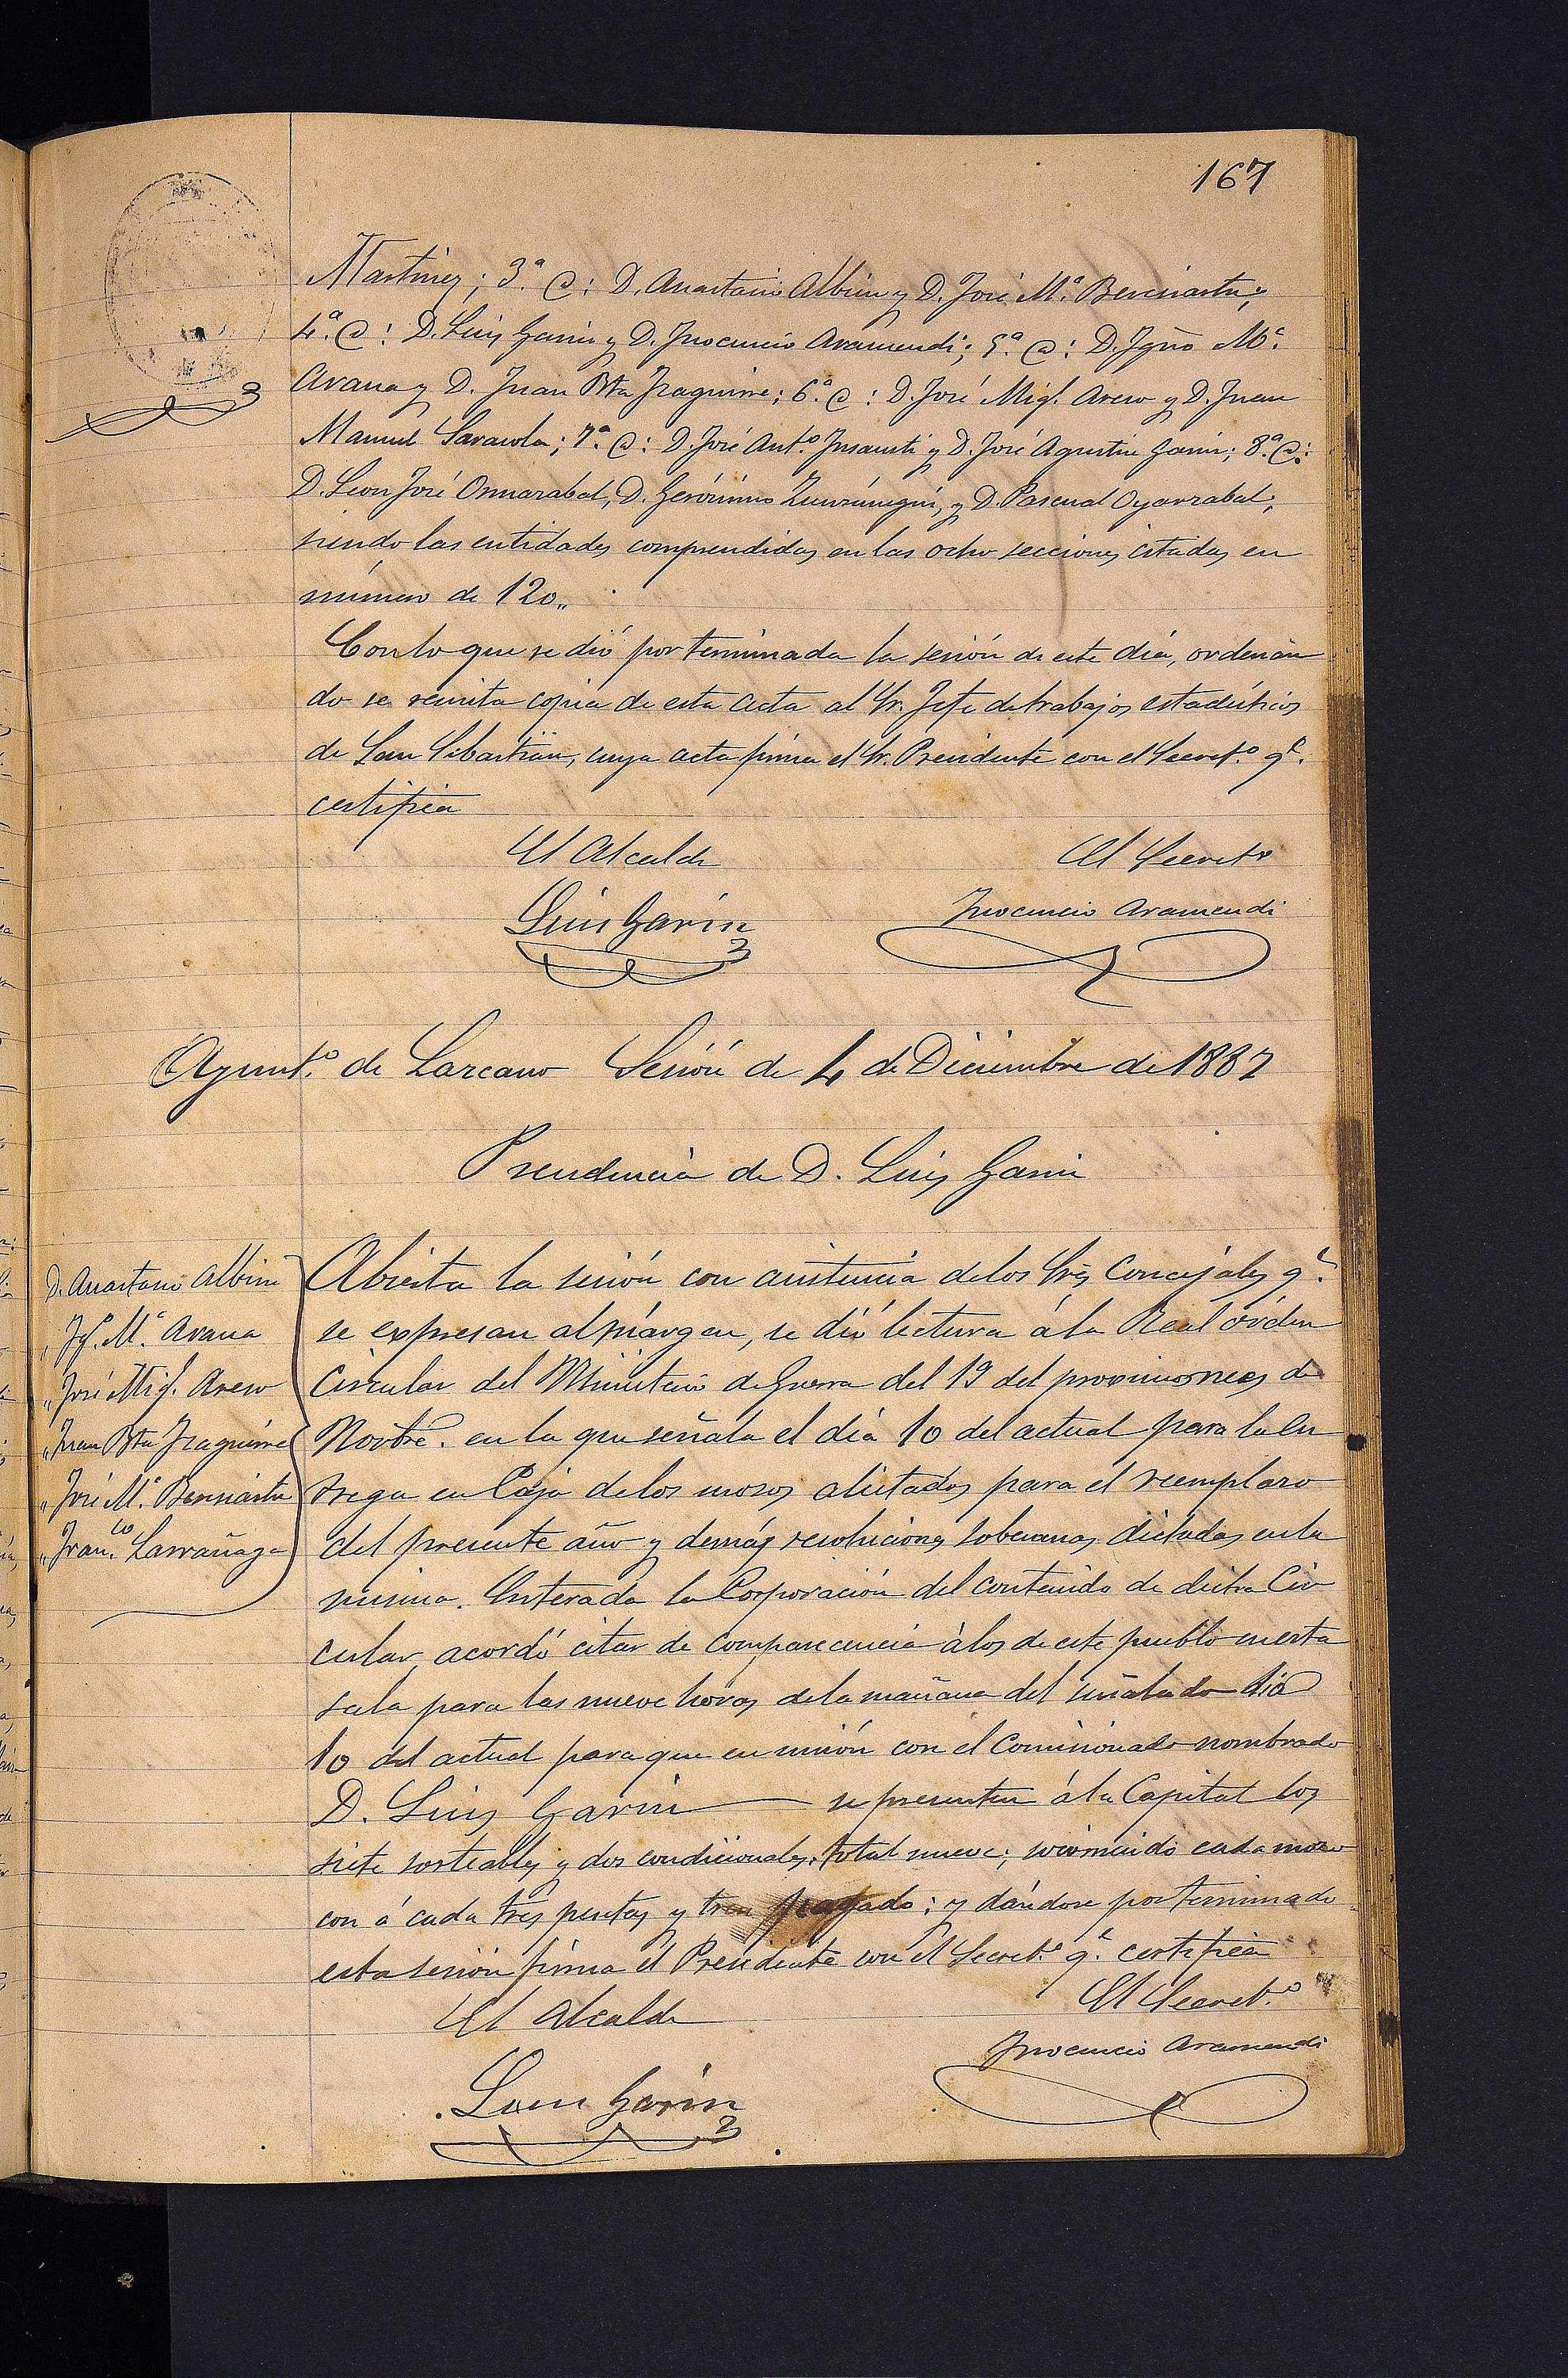 167
Martinez; 3.ª @: D. Anastasio Albisu y D. José M.ª Berasiartu;
4.ª @: D. Luis Garin y D. Inocencio Aramendi; 5.ª @: D. Igño M.ª
Arana y D. Juan Bta Iraguirre; 6.ª @: D. José Mig.l Areso y D. Juan
Manuel Sarasola; 7.ª @: D. José Ant.º Insausti y D. José Agustin Garin; 8.ª @:
D. Leon José Ormazabal, D. Gerónimo y D. Pascual Oyarzabal;
siendo las entidades comprendidas en las ocho secciones citadas en
número de 120,,
Con lo que se dió por terminada la sesión de este día, ordenán
do se remita copia de esta acta al Sr. Jefe de trabajos estadísticos
de San Sebastián, cuya acta firma el Sr. Presidente con el Secret.º q.e
certifica
El Alcalde El Secret.º
Luis Garin Inocencio Aramendi
Ayunt.º de Lazcano Sesión de 4 de Diciembre de 1887
Presidencia de D. Luis Garin
D. Anastasio Albisu
" Ig.º M.ª Arana
" José Mig.l Areso
" Juan Bta Iraguirre
" José M.ª Berasiartu
" Fran.co Larrañaga
Abierta la sesión con asistencia de los Sres Concejales q.e
se expresan al márgen, se dió lectura á la Real órden
Circular del Ministerio de Guerra del 19 del proximo mes de
Novbre. en la que señala el día 10 del actual para la en
trega en Caja de los mozos alistados para el reemplazo
del presente año y demás resoluciones soberanas dictadas en la
misma. Enterada la Corporación del contenido de dicha Cir
cular, acordó citar de comparecencia á los de este pueblo en esta
sala para las nueve horas de la mañana del señalado día
10 del actual para que en unión con el Comisionado nombrado
D. Luis Garin se presenten á la Capital los
siete sorteables y dos condicionales, total nueve; socorriendo cada mozo
con á cada tres pesetas y tren pagado; y dándose por terminado
esta sesión firma el Presidente con el Secret.º q.e certifica
El Alcalde El Secret.º
Luis Garin Inocencio Aramendi